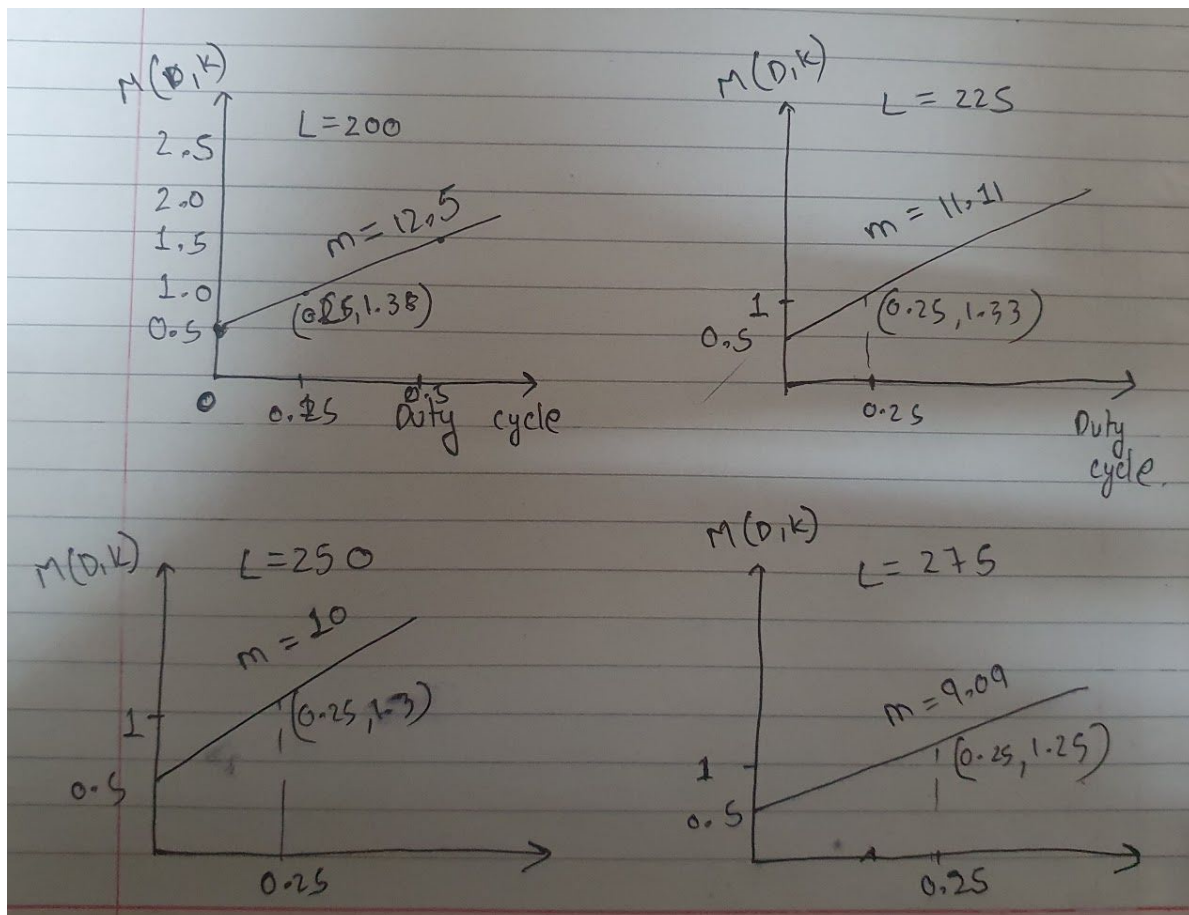 M(D,K)
L=200
2.5
2.0
1.5
1.0
0.5
m=12.5
(0.25,1.38)
0
0.25
0.5
Duty cycle
M(D,K)
L=225
m=11.11
1
0.5
(0.25,1.33)
0.25
Duty
cycle.
M(D,K)
L=250
m=10
1
0.5
(0.25,1.3)
0.25
M(D,K)
L=275
m=9.09
1
0.5
(0.25,1.25)
0.25